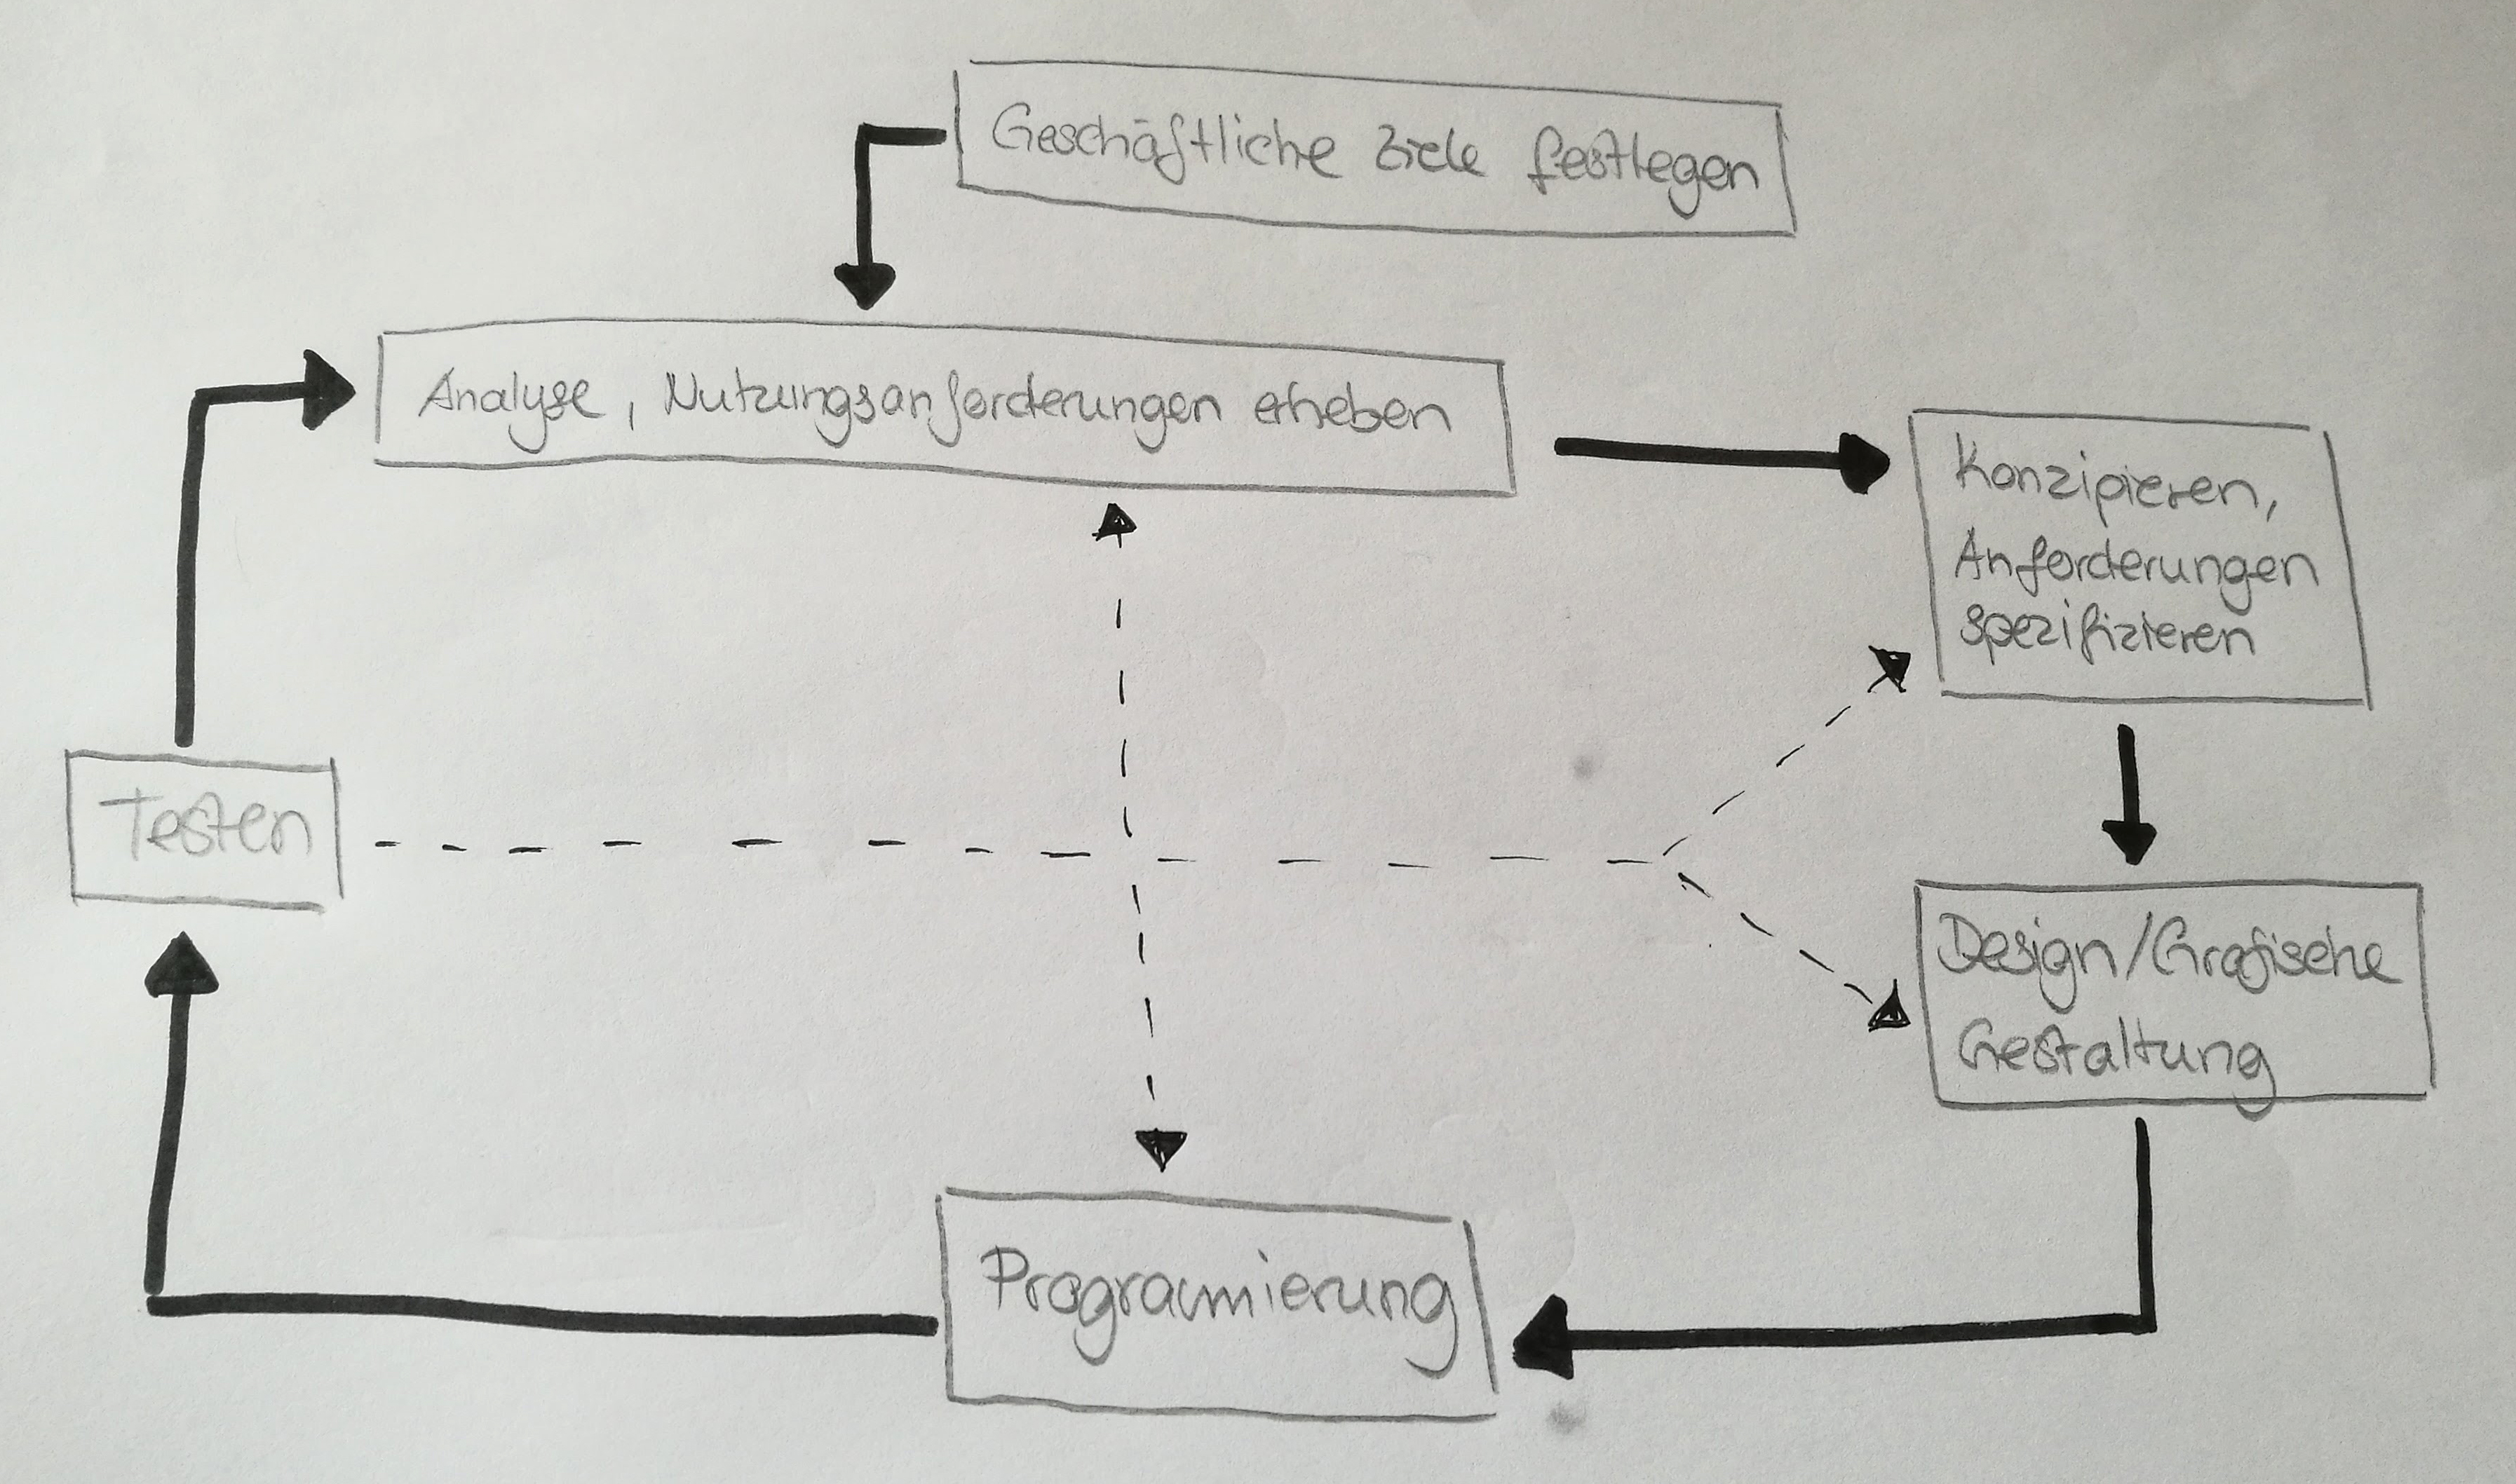 Geschäftliche Ziele festlegen
Analyse, Nutzungsanforderungen erheben
Konzipieren,
Anforderungen
spezifizieren
Testen
Design/Grafische
Gestaltung
Programmierung